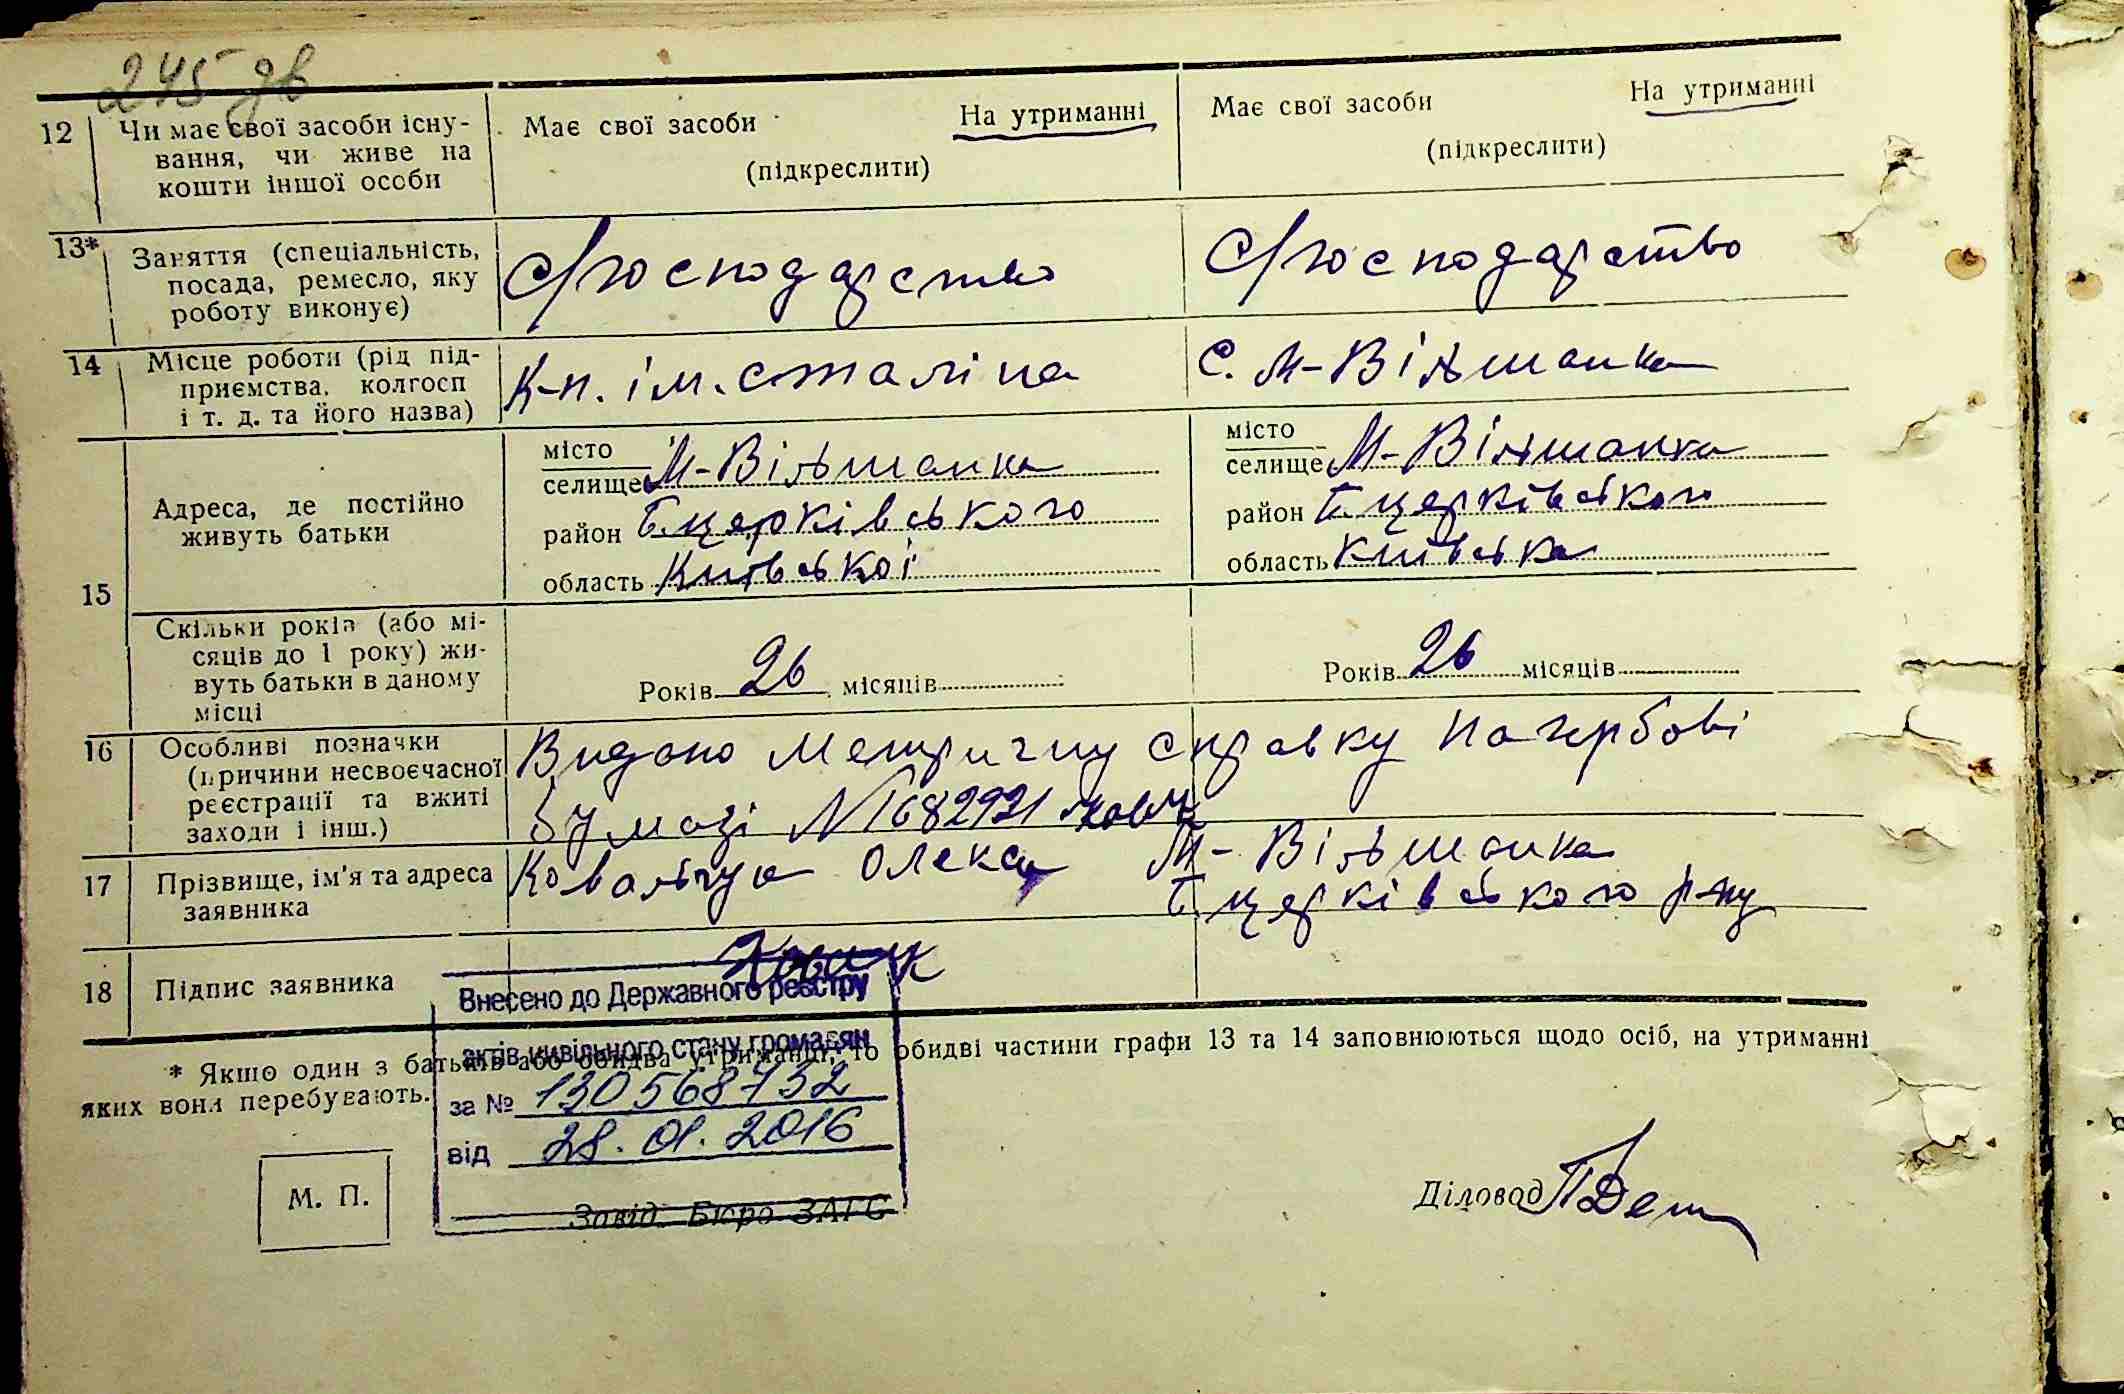 245 дв
12 Чи має свої засоби існу-
вання, чи живе на
кошти іншої особи
Має свої засоби На утриманні
(підкреслити)
Має свої засоби На утриманні
(підкреслити)
13* Заняття (спеціальність,
посада, ремесло, яку
роботу виконує)
С/господарство
С/господарство
14 Місце роботи (рід під-
приємства, колгосп
і т. д. та його назва)
К-п. ім. сталіна
С. М-Вільшанка
15
Адреса, де постійно
живуть батьки
місто
селище М-Вільшанка
район Б.церківського
область Київської
місто
селище М-Вільшанка
район Б.церківського
область Київська
Скільки років (або мі-
сяців до 1 року) жи-
вуть батьки в даному
місці
Років 26 місяців
Років 26 місяців
16 Особливі позначки
(причини несвоєчасної
реєстрації та вжиті
заходи і інш.)
Видано Метричну справку На гербові
бумазі № 1682921
17 Прізвище, ім'я та адреса
заявника
Ковальчук Олекса М-Вільшанка
Б.церківського р-ну
18 Підпис заявника
Внесено до Державного реєстру
актів цивільного стану громадян
за № 130568732
від 28.01.2016
* Якшо один з батьків або обидва утриманці, то обидві частини графи 13 та 14 заповнюються щодо осіб, на утриманні
яких вони перебувають.
М. П.
Завід. Бюро ЗАГС
Діловод